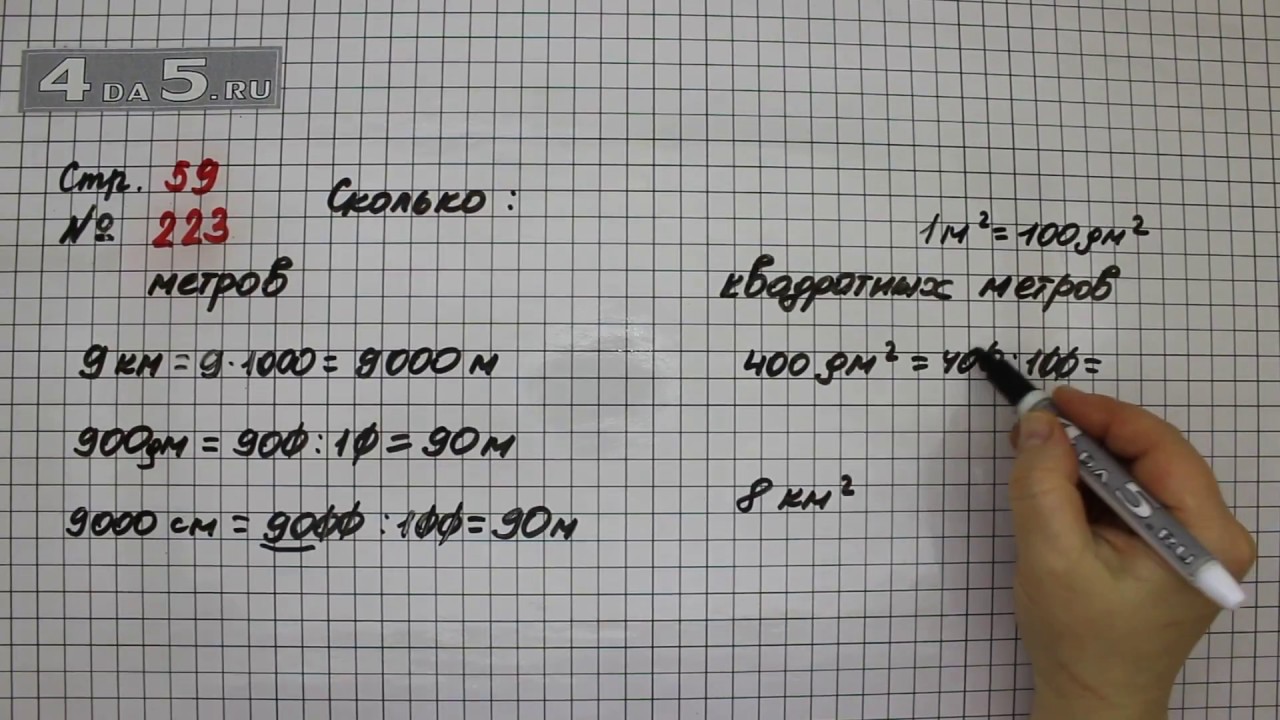 4DA5.RU
Стр. 59
№ 223
Сколько :
метров
9 км = 9·1000 = 9000 м
900 дм = 900 : 10 = 90 м
9000 см = 9000 : 100 = 90 м
1 м² = 100 дм²
квадратных метров
400 дм² = 400 : 100 =
8 км²